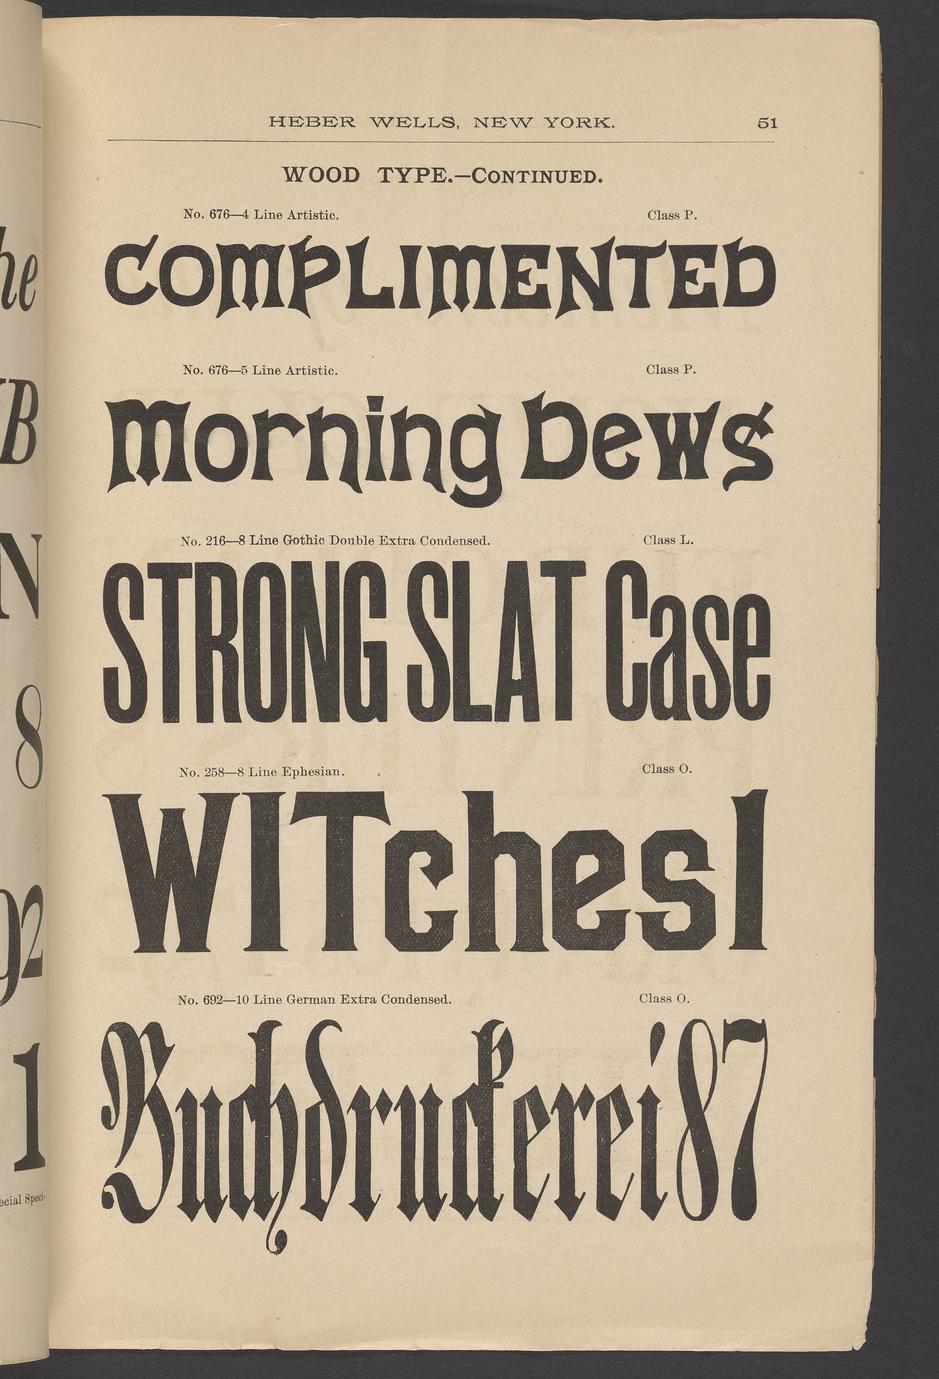 he
B
N
8
92
1
ecial Speci-
HEBER WELLS, NEW YORK. 51
WOOD TYPE.—CONTINUED.
No. 676—4 Line Artistic. Class P.
COMPLIMENTED
No. 676—5 Line Artistic. Class P.
Morning Dews
No. 216—8 Line Gothic Double Extra Condensed. Class L.
STRONG SLAT Case
No. 258—8 Line Ephesian. Class O.
WITches1
No. 692—10 Line German Extra Condensed. Class O.
Buchdruckerei 87